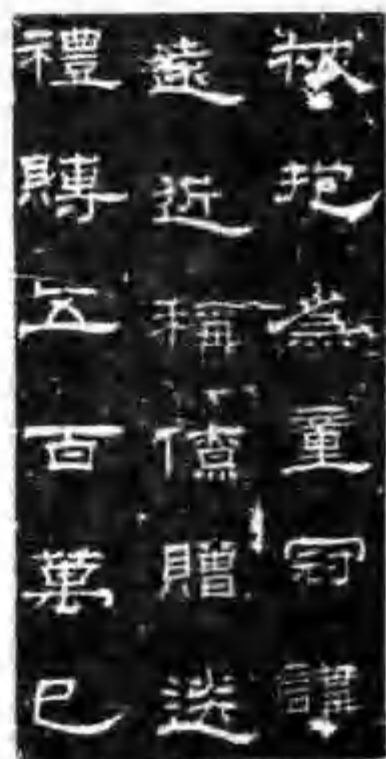 抱童冠講
遠近稱贈送
禮賻五百萬已